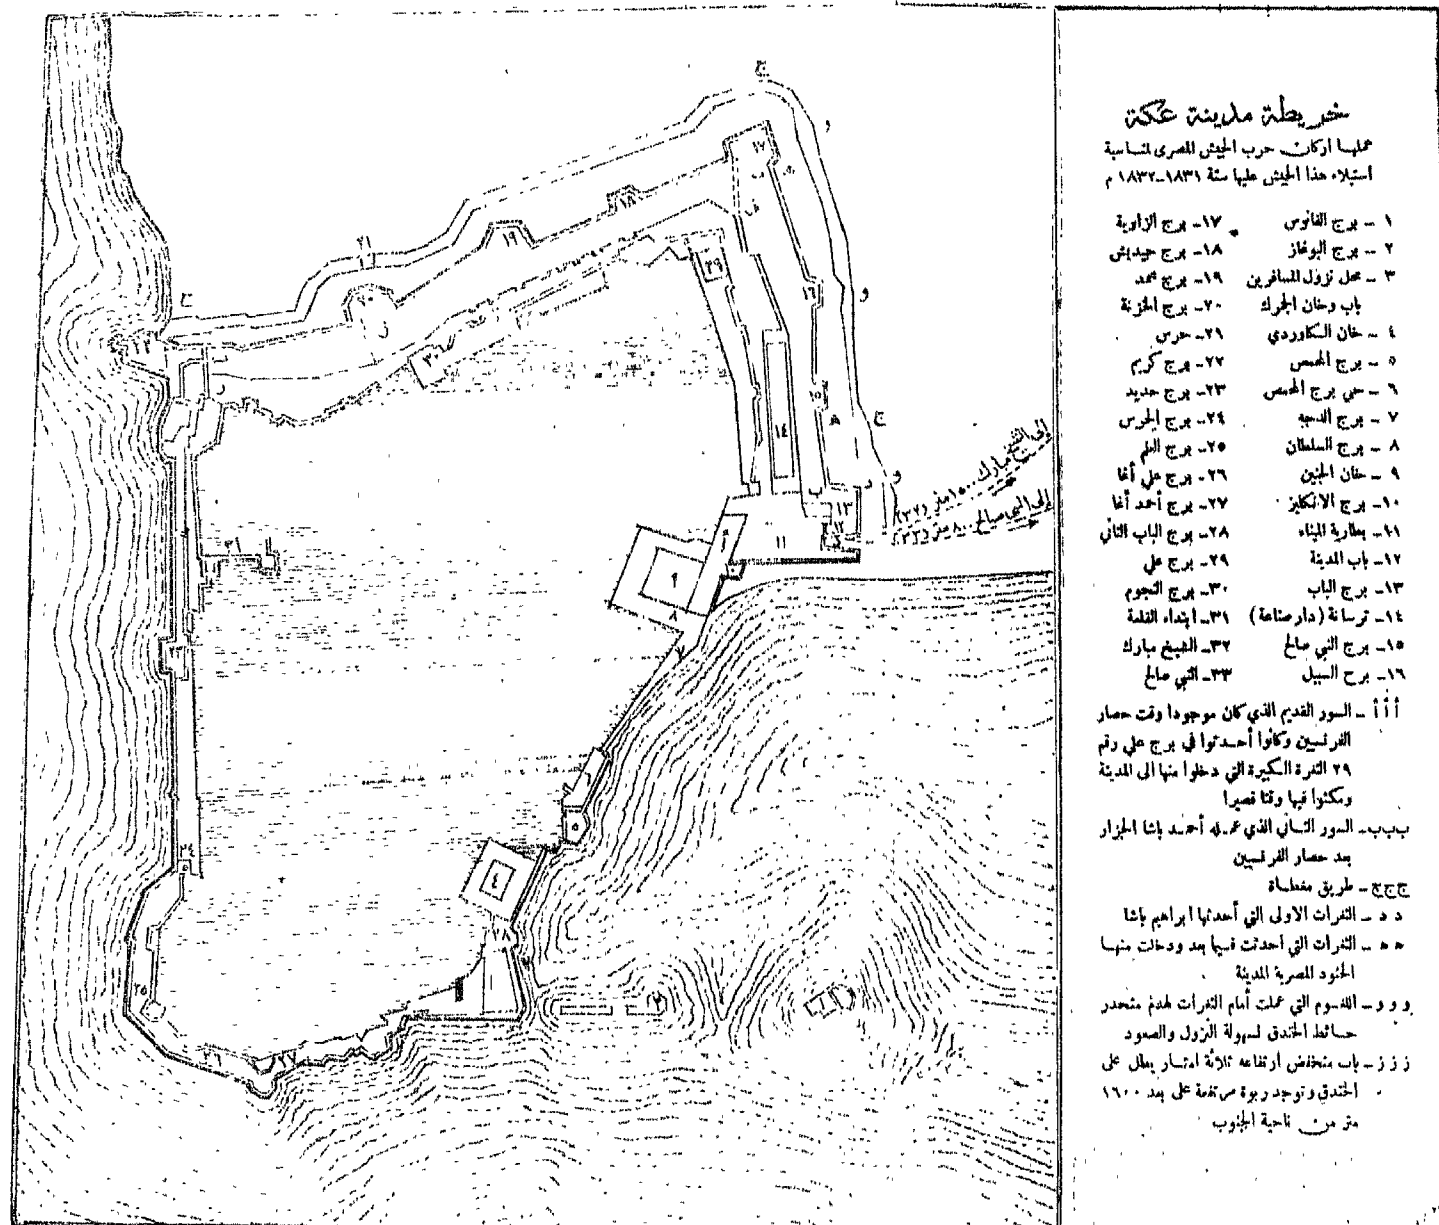 خريطة مدينة عكة
عملها اركان حرب الجيش المصرى لمناسبة
استيلاء هذا الجيش عليها سنة ١٨٣١-١٨٣٢ م
١ - برج الفانوس
٢ - برج البوغاز
٣ - محل نزول المسافرين
باب وخان الجمرك
٤ - خان السكاوردي
٥ - برج المحمص
٦ - حي برج المحمص
٧ - برج
٨ - برج السلطان
٩ - خان
١٠- برج الانكليز
١١- بطارية الميناء
١٢- باب المدينة
١٣- برج الباب
١٤- ترسانة (دار صناعة)
١٥- برج النبي صالح
١٦- برح السبيل
١٧- برج الزاوية
١٨- برج
١٩- برج محمد
٢٠- برج الخزنة
٢١- حرس
٢٢- برج كريم
٢٣- برج حديد
٢٤- برج الحرس
٢٥- برج العلم
٢٦- برج علي أغا
٢٧- برج أحمد أغا
٢٨- برج الباب الثاني
٢٩- برج علي
٣٠- برج النجوم
٣١- ابتداء القلعة
٣٢- الشيخ مبارك
٣٣- النبي صالح
أ أ أ - السور القديم الذي كان موجودا وقت حصار
الفرنسيين وكانوا أحدثوا في برج علي رقم
٢٩ الثغرة الكبيرة التي دخلوا منها الى المدينة
ومكثوا فيها وقتا قصيرا
ب ب ب - السور الثاني الذي عمله أحمد باشا الجزار
بعد حصار الفرنسيين
ج ج ج - طريق مغطاة
د د - الثغرات الاولى التي أحدثها ابراهيم باشا
ه ه - الثغرات التي احدثت فيما بعد ودخلت منها
الجنود المصرية المدينة
و و و - اللغوم التي عملت أمام الثغرات لهدم منحدر
حائط الخندق لسهولة النزول والصعود
ز ز ز - باب منخفض ارتفاعه ثلاثة امتار يطل على
الخندق وتوجد ربوة مرتفعة على بعد ١٦٠٠
متر من ناحية الجنوب
إلى الشيخ مبارك ١٥٠٠ متر (٣٢)
إلى النبي صالح ٨٠٠ متر (٣٣)
ج
و
١٧
ب
١٨
١٩
٢١
٢٠
ز
ح
٢٩
١٦
و
٣٠
١٥
ه
ج
١٤
و
د
ب
١٣
١٢
١١
أ
١٠
٩
٨
٧
٣١
٦
٥
٤
٢٨
٢
٢٥
٢٦
٢٧